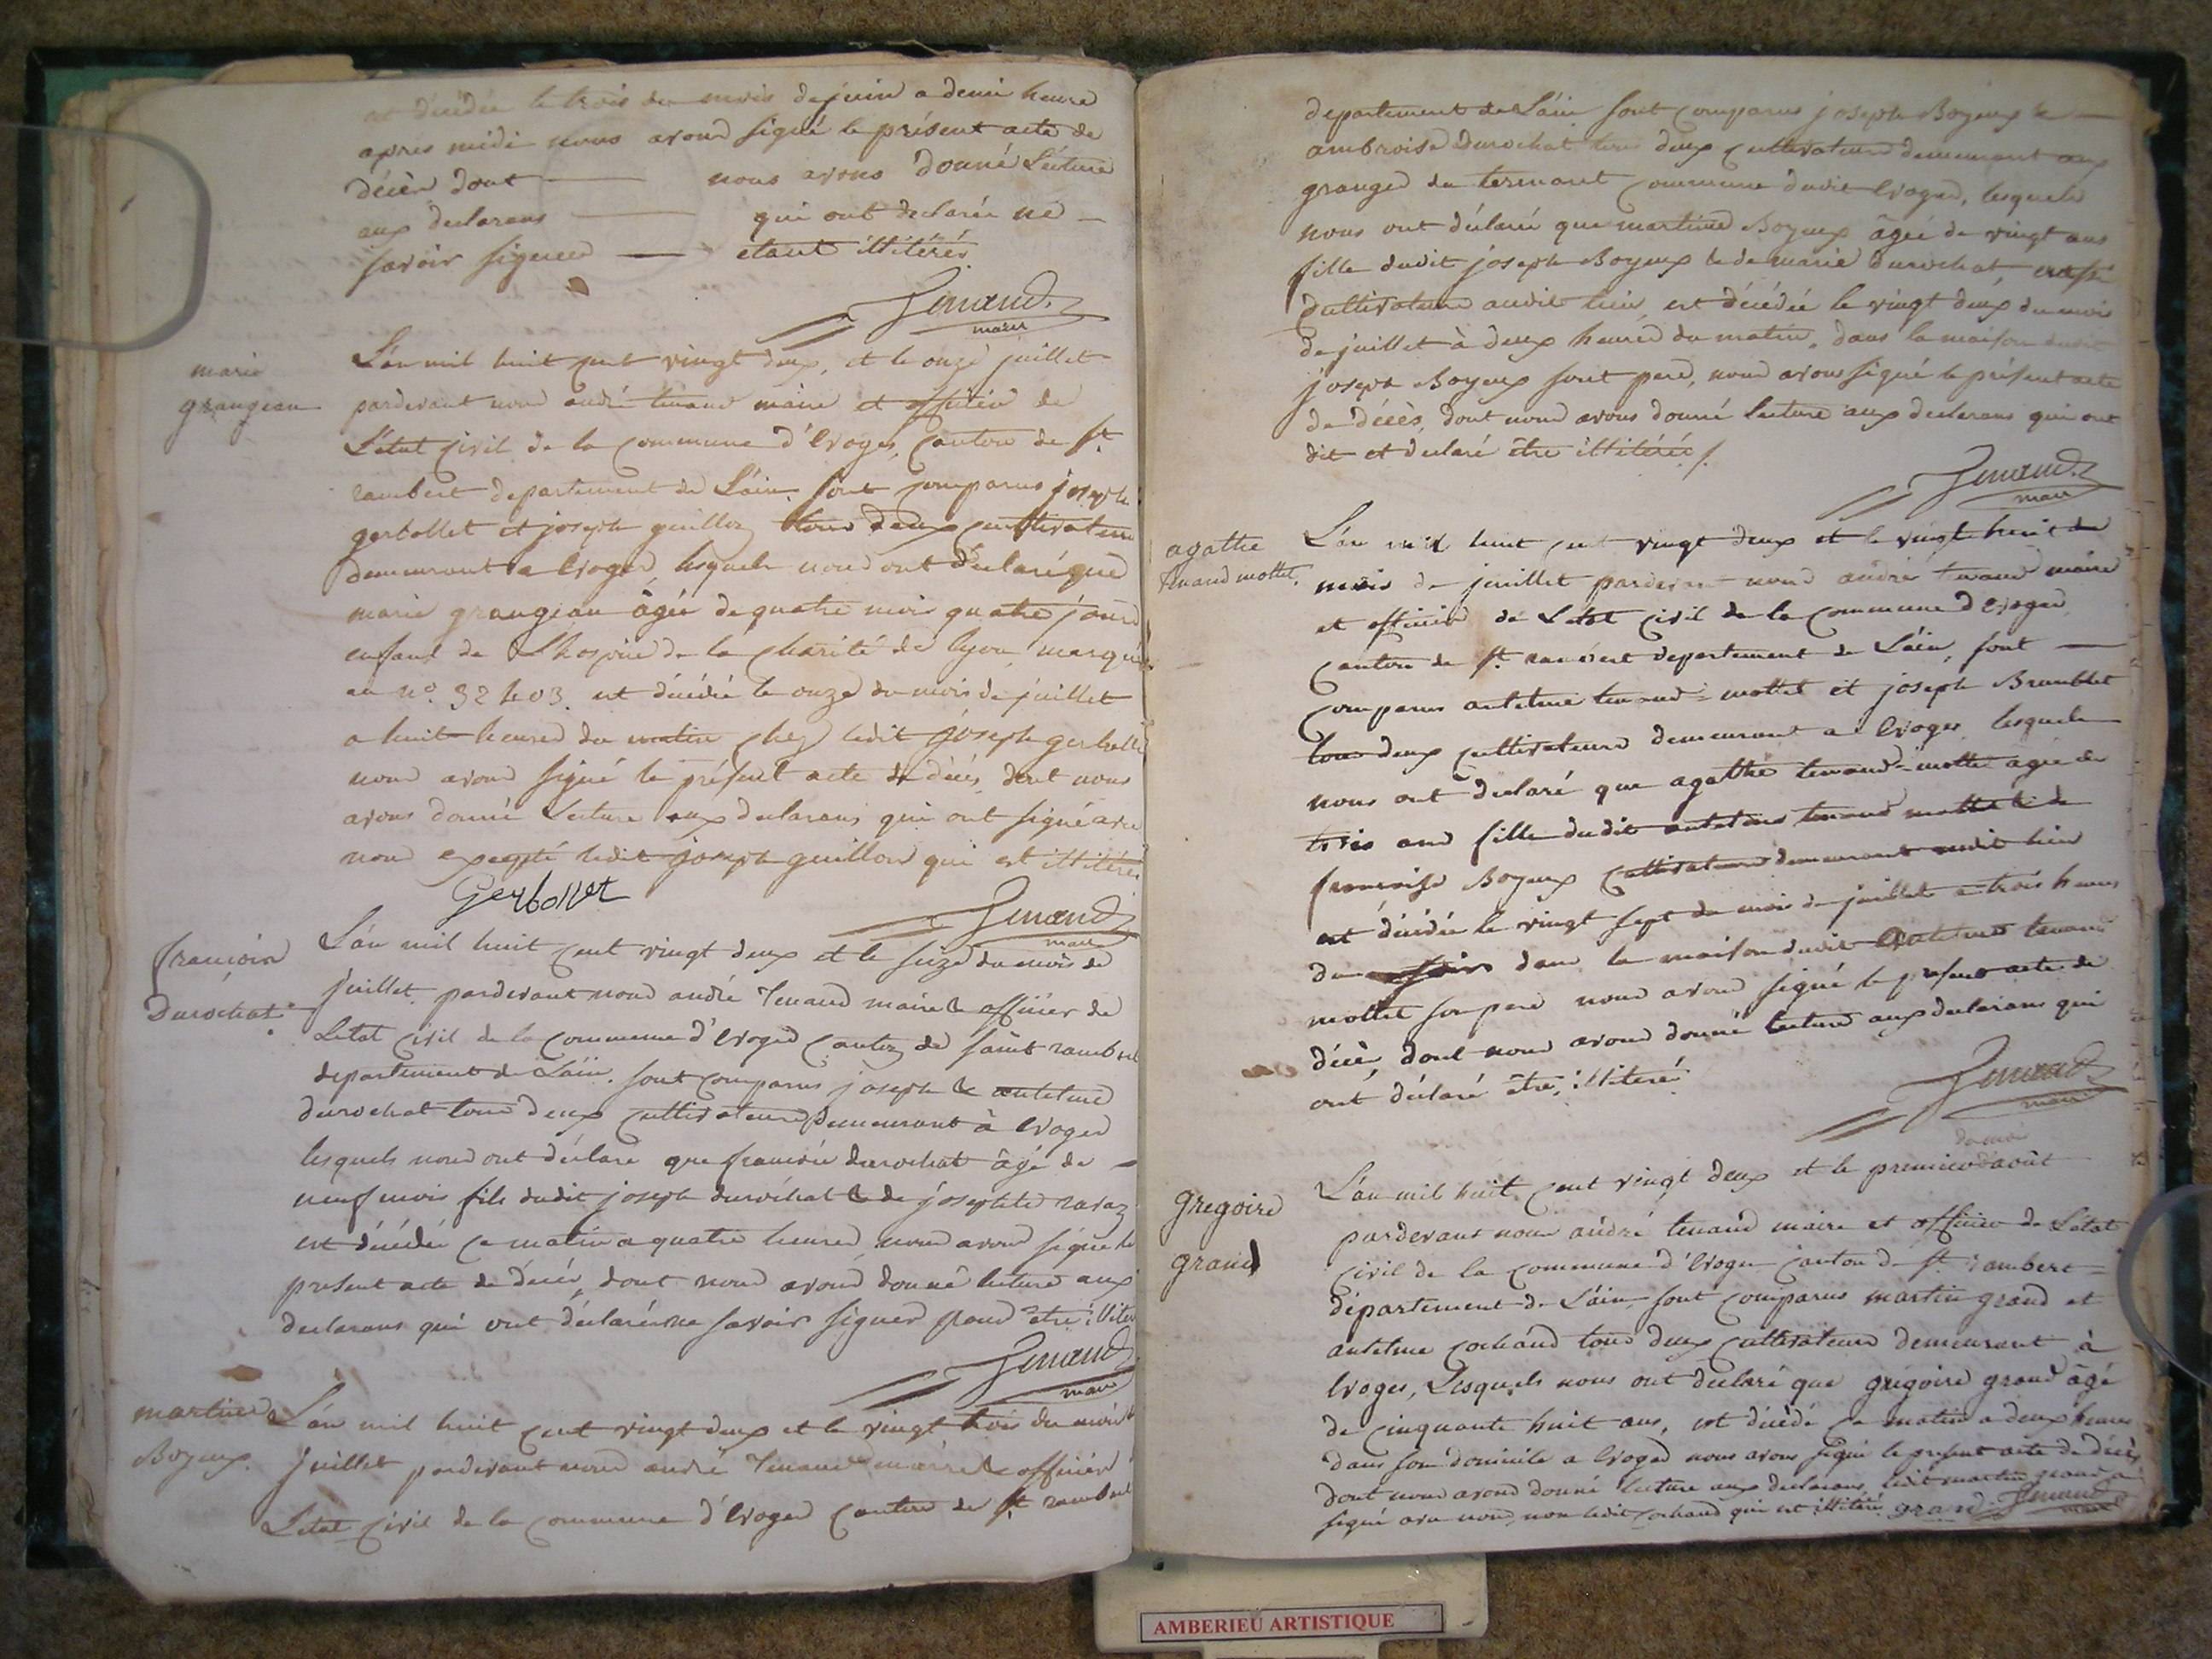 est décédée le trois du mois de juin a demi heure
après midi nous avons signé le présent acte de
décès dont nous avons donné Lecture
aux declarans qui ont declarée ne
savoir signer etant illitérés
Tenand
maire
marie
grangean
L'an mil huit cent vingt deux, et le onze juillet
pardevant nous andré tenand maire et officier de
L'état civil de la commune d'Evoges, canton de St
rambert departement de L'ain. sont comparus joseph
gerbollet et joseph guillon tous deux cultivateurs
demeurant a Evoges, lesquels nous ont déclaré que
marie grangean âgée de quatre mois quatre jours
enfant de L'hospice de la charité de lyon, marquée
au n.º 32403. est décédée le onze du mois de juillet
a huit heures du matin chez ledit joseph gerbollet
nous avons signé le présent acte de décès, dont nous
avons donné Lecture aux declarans qui ont signé avec
nous excepté ledit joseph guillon qui est illitéré
Gerbollet
Tenand
maire
francois
Durochat
L'an mil huit cent vingt deux et le seize du mois de
juillet. pardevant nous andré Tenand maire & officier de
Letat civil de la commune d'Evoges canton de saint rambert
departement de L'ain. sont comparus joseph & antelme
durochat tous deux cultivateurs demeurant à Evoges
lesquels nous ont déclaré que francois durochat âgé de
neuf mois fils dudit joseph durochat & de josephte ravaz
est décédé ce matin a quatre heures, nous avons signé le
present acte de décès, dont nous avons donné lecture aux
declarans qui ont déclaré ne savoir signer pour être illiter
Tenand
maire
martine
Boyeux.
L'an mil huit cent vingt deux et le vingt trois du mois
juillet pardevant nous andré Tenand maire & officier
Letat civil de la commune d'Evoges canton de St rambert
departement de L'ain sont comparus joseph Boyeux &
ambroise Durochat tous deux cultivateurs demeurant aux
granges du commune dudit Evoges, lesquels
nous ont déclaré que martine Boyeux âgée de vingt ans
fille dudit joseph Boyeux & de marie durochat,
cultivateurs audit lieu, est décédée le vingt deux du mois
de juillet à deux heures du matin, dans la maison dudit
joseph Boyeux sont pere, nous avons signé le présent acte
de décès, dont nous avons donné lecture aux declarans qui ont
dit et declaré être illitérés.
Tenand
maire
agathe
tenand mottet.
L'an mil huit cent vingt deux et le vingt huit du
mois de juillet pardevant nous andré tenand maire
et officier de L'état civil de la commune d'Evoges,
canton de St rambert departement de L'ain, sont
comparus antelme tenand-mottet et joseph Brunblet
tous deux cultivateurs demeurant a Evoges, lesquels
nous ont declaré que agathe tenand-mottet agée de
trois ans fille dudit antelme tenand mottet & de
francoise Boyeux cultivateurs demeurant audit lieu
est décédée le vingt sept du mois de juillet a trois heures
du soir dans la maison dudit antelme tenand
mottet son pere nous avons signé le present acte de
décès, dont nous avons donné lecture aux declarans qui
ont déclaré être illiterés
Tenand
maire
gregoire
grand
du mois
L'an mil huit cent vingt deux et le premier d'août
pardevant nous andré tenand maire et officier de L'état
civil de la commune d'Evoges canton de St rambert
département de L'ain, sont comparus martin grand et
antelme cochand tous deux cultivateurs demeurant à
Evoges, Lesquels nous ont declaré que grégoire grand âgé
de cinquante huit ans, est décédé ce matin a deux heures
dans son domicile a Evoges nous avons signé le present acte de décès
dont nous avons donné lecture aux declarans, ledit martin grand a
signé avec nous, non ledit cochand qui est illitéré grand Tenand
maire
AMBERIEU ARTISTIQUE